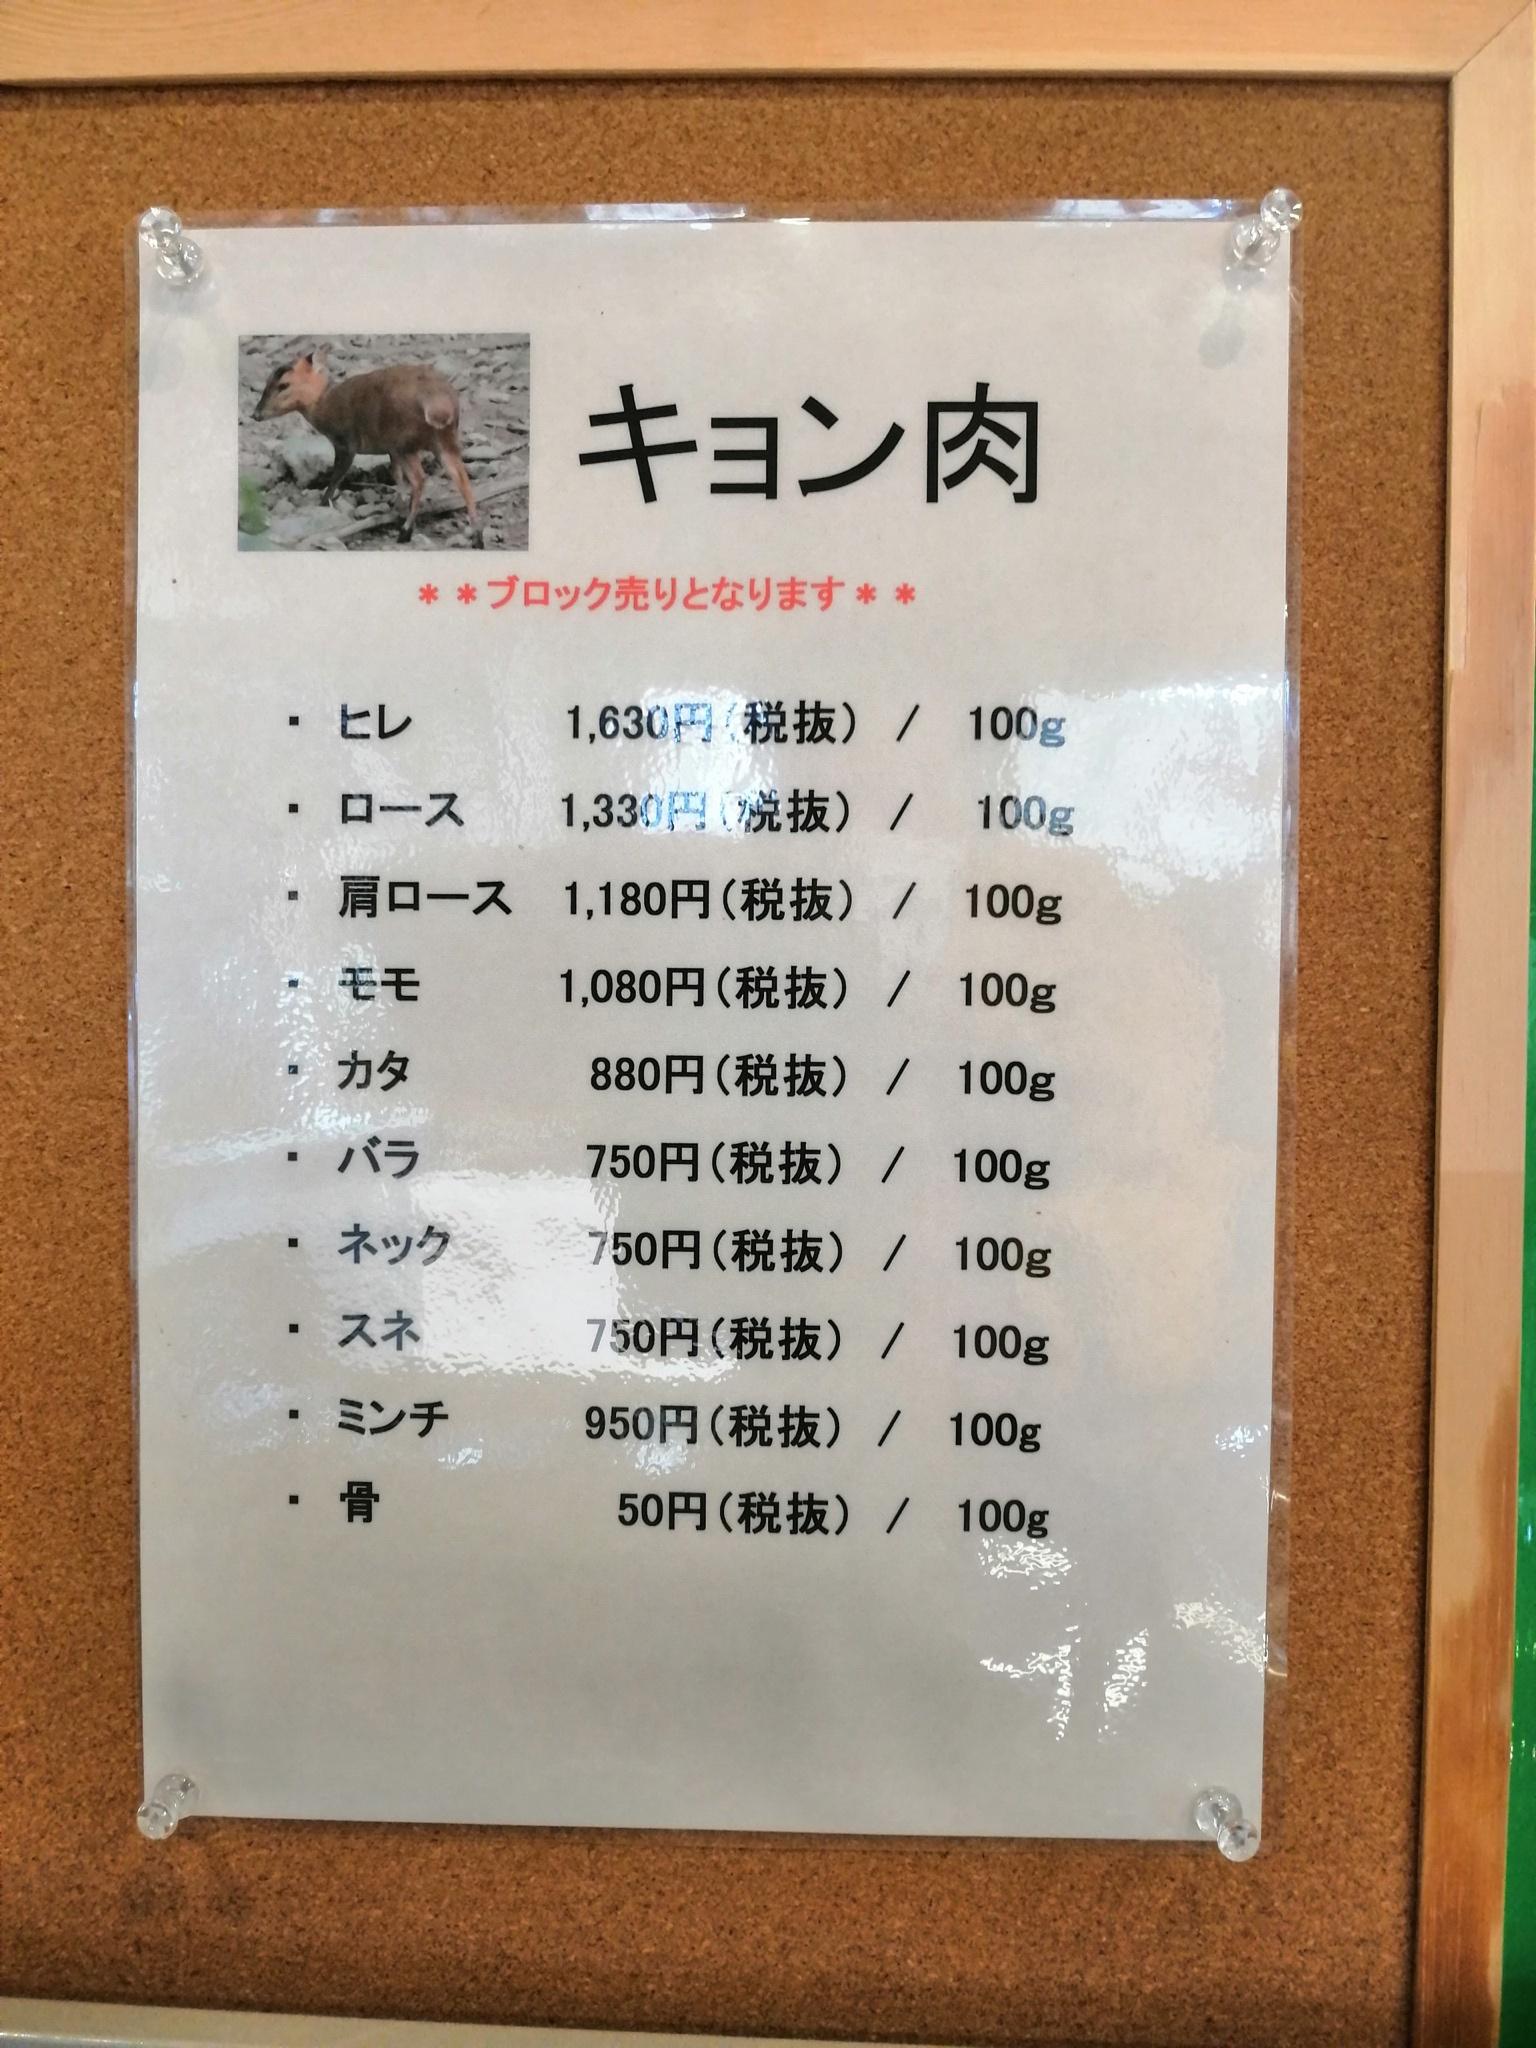 キョン肉
＊＊ブロック売りとなります＊＊
・ ヒレ 1,630円（税抜） / 100g
・ ロース 1,330円（税抜） / 100g
・ 肩ロース 1,180円（税抜） / 100g
・ モモ 1,080円（税抜） / 100g
・ カタ 880円（税抜） / 100g
・ バラ 750円（税抜） / 100g
・ ネック 750円（税抜） / 100g
・ スネ 750円（税抜） / 100g
・ ミンチ 950円（税抜） / 100g
・ 骨 50円（税抜） / 100g